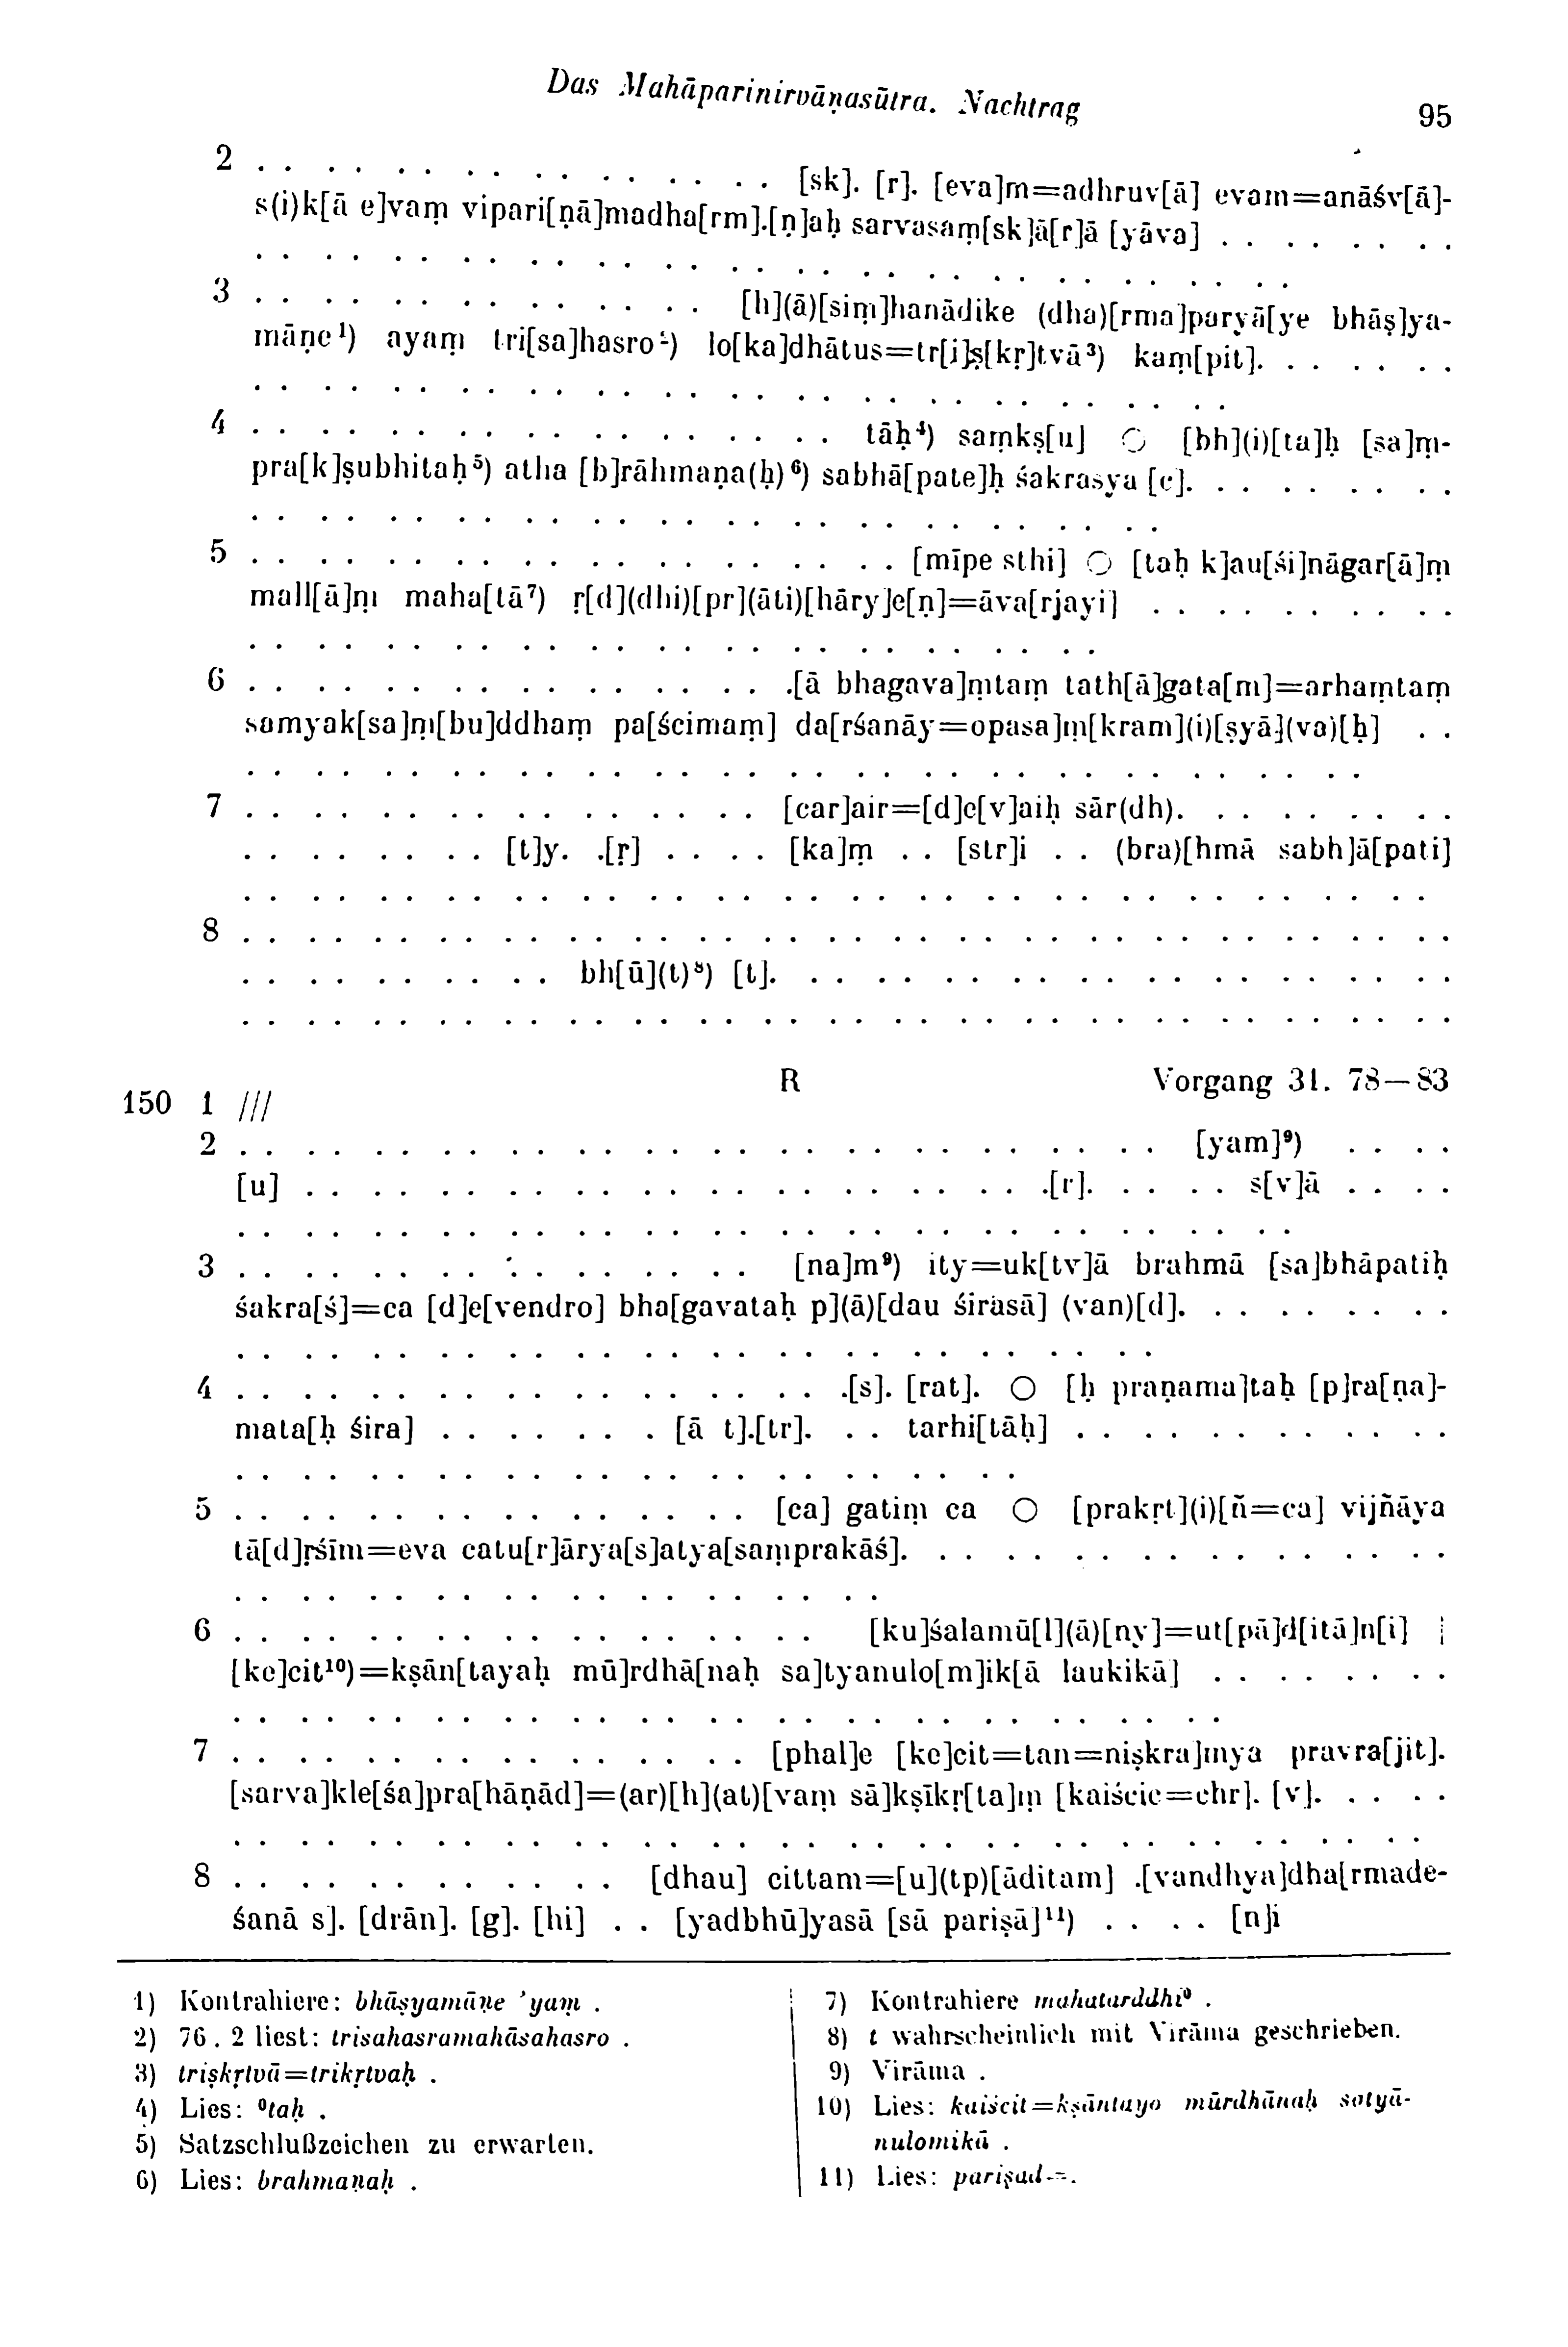 Das Mahāparinirvāṇasūtra. Nachtrag 95
2 . . . . . . . . . . . . . . . . [sk]. [r]. [eva]m=adhruv[ā] evam=anāśv[ā]-
s(i)k[ā e]vaṃ vipari[ṇā]madha[rm].[ṇ]aḥ sarvasaṃ[sk]ā[r]ā [yāva] . . . . . . . .
. . . . . . . . . . . . . . . . . . . . . . . . . . . . . . . .
3 . . . . . . . . . . . . . . [h](ā)[siṃ]hanādike (dha)[rma]paryā[ye bhāṣ]ya-
māṇe¹) ayaṃ tri[sa]hasro²) lo[ka]dhātus=tr[i]ṣ[kṛ]tvā³) kaṃ[pit]. . . . . . .
. . . . . . . . . . . . . . . . . . . . . . . . . . . . . .
4 . . . . . . . . . . . . . . . . . . tāḥ⁴) saṃkṣ[u] ○ [bh](i)[ta]ḥ [sa]ṃ-
pra[k]ṣubhitaḥ⁵) atha [b]rāhmaṇa(ḥ)⁶) sabhā[pate]ḥ śakrasya [c]. . . . . . . . .
. . . . . . . . . . . . . . . . . . . . . . . . . . . .
5 . . . . . . . . . . . . . . . . . . . . [mīpe sthi] ○ [taḥ k]au[śi]nāgar[ā]ṃ
mall[ā]ṃ maha[tā⁷) ṛ[d](dhi)[pr](āti)[hāry]e[ṇ]=āva[rjayi] . . . . . . . . . .
. . . . . . . . . . . . . . . . . . . . . . . . . .
6 . . . . . . . . . . . . . . . . .[ā bhagava]ṃtaṃ tath[ā]gata[m]=arhaṃtaṃ
samyak[sa]ṃ[bu]ddhaṃ pa[ścimaṃ] da[rśanāy=opasa]ṃ[kram](i)[ṣyā](va)[ḥ] . .
. . . . . . . . . . . . . . . . . . . . . . . . . . . . . . . . . .
7 . . . . . . . . . . . . . . . . [car]air=[d]e[v]aiḥ sār(dh). . . . . . . . .
. . . . . . . . [t]y. .[ṛ] . . . . [ka]ṃ . . [str]i . . (bra)[hmā sabh]ā[pati]
. . . . . . . . . . . . . . . . . . . . . . . . . . . . . . . . . . . .
8 . . . . . . . . . . . . . . . . . . . . . . . . . . . . . . . . . . . . .
. . . . . . . . . . bh[ū](t)⁸) [t]. . . . . . . . . . . . . . . . . . . . .
. . . . . . . . . . . . . . . . . . . . . . . . . . . . . . . . . . . . . .
R Vorgang 31. 78—83
150 1 ///
2 . . . . . . . . . . . . . . . . . . . . . . . . . . . . [yam]⁹) . . . .
[u] . . . . . . . . . . . . . . . . . . . . . . .[r]. . . . . s[v]ā . . . .
. . . . . . . . . . . . . . . . . . . . . . . . . . . . . . . .
3 . . . . . . . . . . . . . . . . [na]m⁹) ity=uk[tv]ā brahmā [sa]bhāpatiḥ
śakra[ś]=ca [d]e[vendro] bha[gavataḥ p](ā)[dau śirasā] (van)[d]. . . . . . . . .
. . . . . . . . . . . . . . . . . . . . . . . . . . . .
4 . . . . . . . . . . . . . . . . . . .[s]. [rat]. ○ [ḥ praṇama]taḥ [p]ra[ṇa]-
mata[ḥ śira] . . . . . . . [ā t].[tr]. . . tarhi[tāḥ] . . . . . . . . . . . .
. . . . . . . . . . . . . . . . . . . . . . . .
5 . . . . . . . . . . . . . . . . [ca] gatiṃ ca ○ [prakṛt](i)[ñ=ca] vijñāya
tā[d]ṛśīm=eva catu[r]ārya[s]atya[saṃprakāś]. . . . . . . . . . . . . . . . .
. . . . . . . . . . . . . . . . . . . .
6 . . . . . . . . . . . . . . . . . . [ku]śalamū[l](ā)[ny]=ut[pā]d[itā]n[i] |
[ke]cit¹⁰)=kṣān[tayaḥ mū]rdhā[naḥ sa]tyanulo[m]ik[ā laukikā] . . . . . . . .
. . . . . . . . . . . . . . . . . . . . . . . . . . . . . .
7 . . . . . . . . . . . . . . . . [phal]e [ke]cit=tan=niṣkra]mya pravra[jit].
[sarva]kle[śa]pra[hāṇād]=(ar)[h](at)[vaṃ sā]kṣīkṛ[ta]ṃ [kaiścic=chr]. [v]. . . . .
. . . . . . . . . . . . . . . . . . . . . . . . . . . . . . . . . . . .
8 . . . . . . . . . . . . [dhau] cittam=[u](tp)[āditam] .[vandhya]dha[rmade-
śanā s]. [drān]. [g]. [hi] . . [yadbhū]yasā [sā pariṣā]¹¹) . . . . [n]i
1) Kontrahiere: bhāṣyamāṇe ’yaṃ .
2) 76. 2 liest: trisahasramahāsahasro .
3) triṣkṛtvā=trikṛtvaḥ .
4) Lies: ⁰taḥ .
5) Satzschlußzeichen zu erwarten.
6) Lies: brahmaṇaḥ .
7) Kontrahiere mahatarddhi⁰ .
8) t wahrscheinlich mit Virāma geschrieben.
9) Virāma .
10) Lies: kaiścit=kṣāntayo mūrdhānaḥ satyā-
nulomikā .
11) Lies: pariṣad-=.